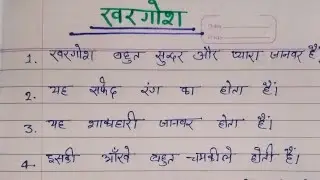 खरगोश
1. खरगोश बहुत सुन्दर और प्यारा जानवर है
2. यह सफेद रंग का होता हैं।
3. यह शाकाहारी जानवर होता हैं।
4. इसकी आँखे बहुत चमकीले होती हैं।